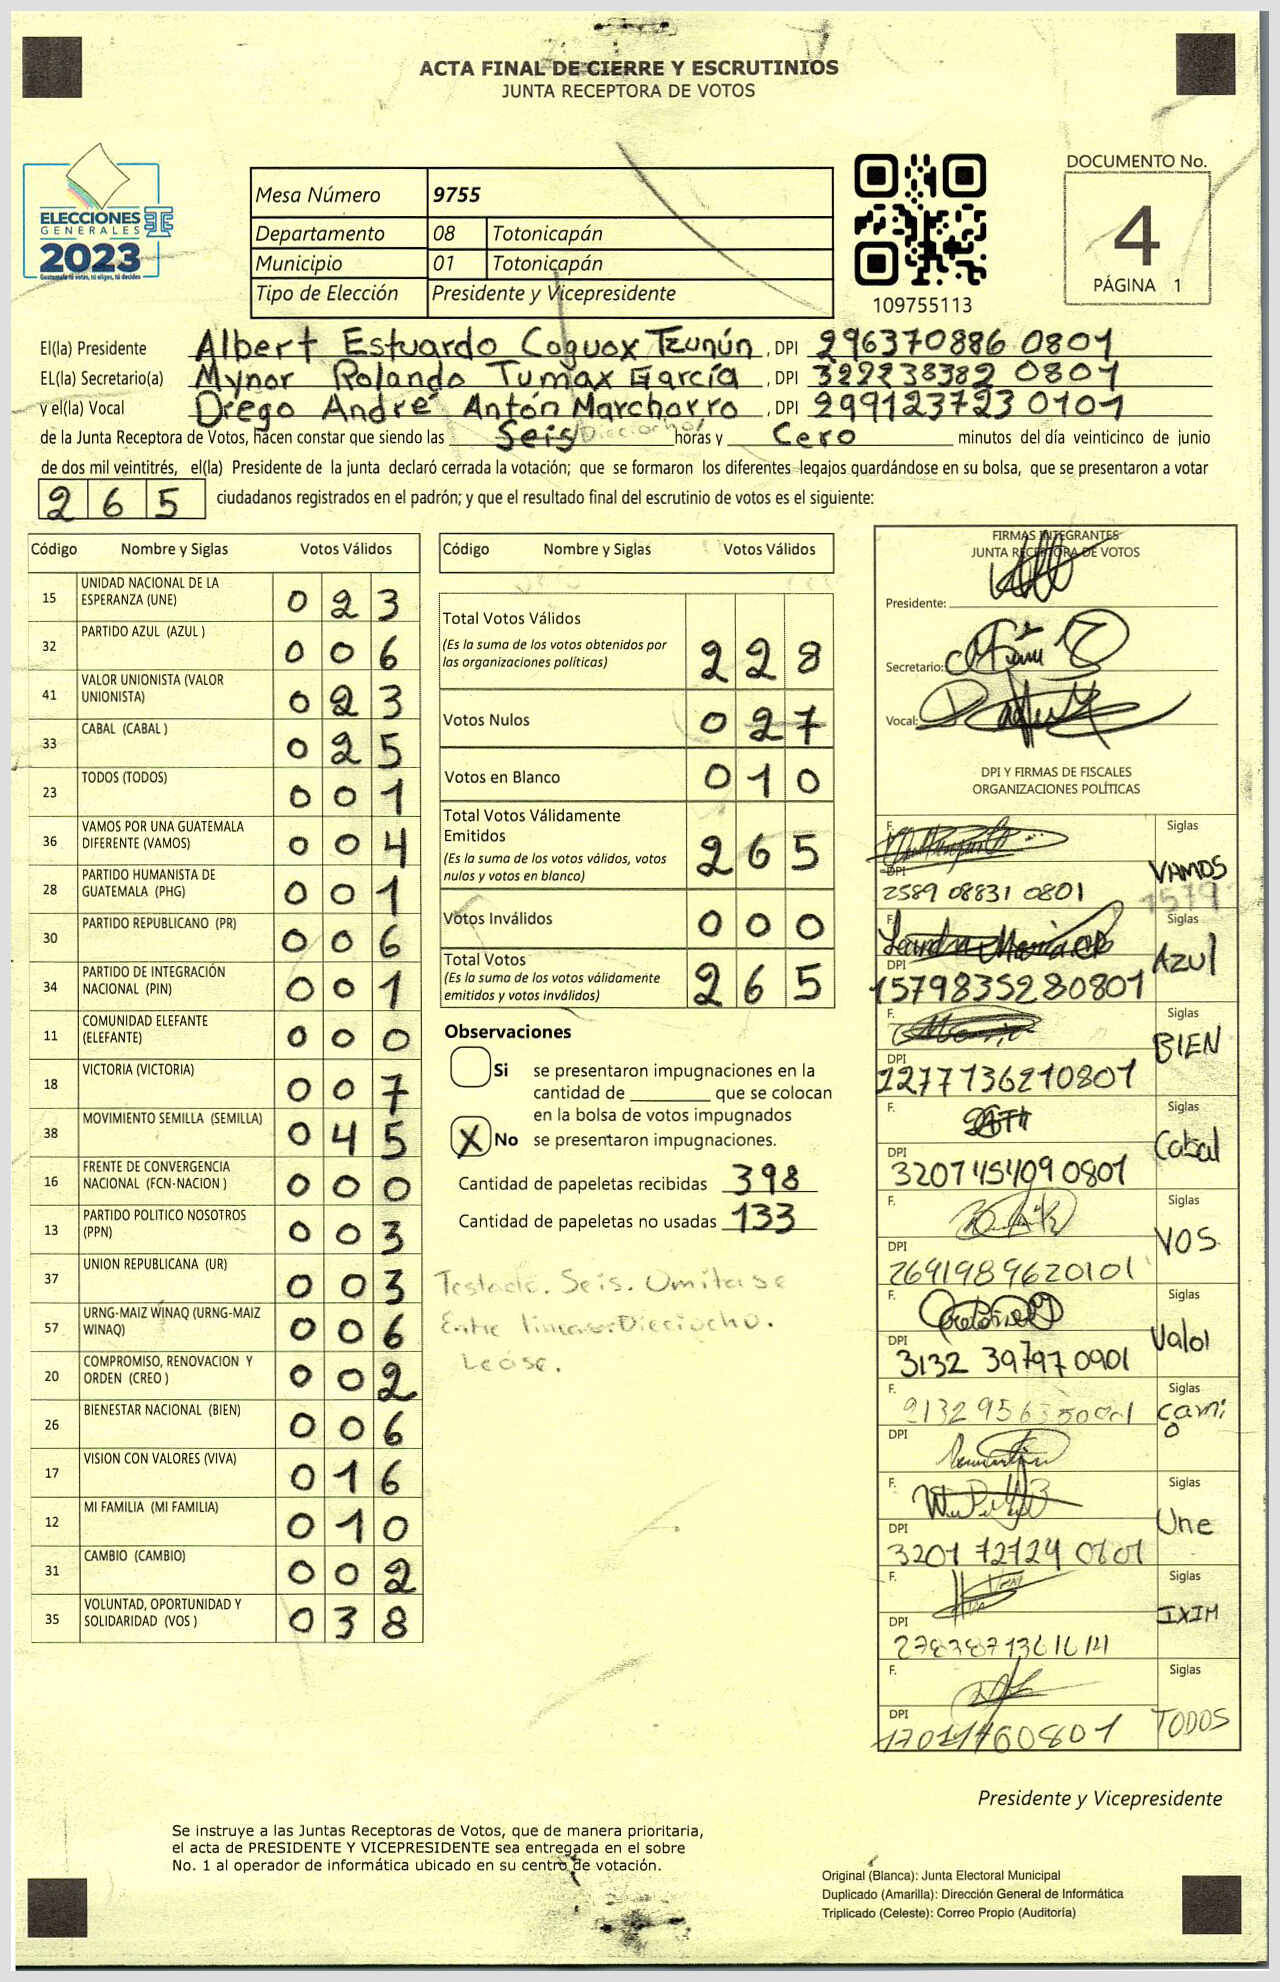 ACTA FINAL DE CIERRE Y ESCRUTINIOS
JUNTA RECEPTORA DE VOTOS
ELECCIONES
GENERALES
2023
Guatemala tú votas, tú eliges, tú decides
Mesa Número 9755
Departamento 08 Totonicapán
Municipio 01 Totonicapán
Tipo de Elección Presidente y Vicepresidente
109755113
DOCUMENTO No.
4
PÁGINA 1
El(la) Presidente Albert Estuardo Coguox Tzunún, DPI 296370886 0801
EL(la) Secretario(a) Mynor Rolando Tumax García, DPI 322238382 0801
y el(la) Vocal Diego André Antón Marchorro, DPI 299123723 0101
de la Junta Receptora de Votos, hacen constar que siendo las Seis Dieciocho horas y Cero minutos del día veinticinco de junio
de dos mil veintitrés, el(la) Presidente de la junta declaró cerrada la votación; que se formaron los diferentes legajos guardándose en su bolsa, que se presentaron a votar
265 ciudadanos registrados en el padrón; y que el resultado final del escrutinio de votos es el siguiente:
Código Nombre y Siglas Votos Válidos
15 UNIDAD NACIONAL DE LA ESPERANZA (UNE) 023
32 PARTIDO AZUL (AZUL ) 006
41 VALOR UNIONISTA (VALOR UNIONISTA) 023
33 CABAL (CABAL ) 025
23 TODOS (TODOS) 001
36 VAMOS POR UNA GUATEMALA DIFERENTE (VAMOS) 004
28 PARTIDO HUMANISTA DE GUATEMALA (PHG) 001
30 PARTIDO REPUBLICANO (PR) 006
34 PARTIDO DE INTEGRACIÓN NACIONAL (PIN) 001
11 COMUNIDAD ELEFANTE (ELEFANTE) 000
18 VICTORIA (VICTORIA) 007
38 MOVIMIENTO SEMILLA (SEMILLA) 045
16 FRENTE DE CONVERGENCIA NACIONAL (FCN-NACION ) 000
13 PARTIDO POLITICO NOSOTROS (PPN) 003
37 UNION REPUBLICANA (UR) 003
57 URNG-MAIZ WINAQ (URNG-MAIZ WINAQ) 006
20 COMPROMISO, RENOVACION Y ORDEN (CREO ) 002
26 BIENESTAR NACIONAL (BIEN) 006
17 VISION CON VALORES (VIVA) 016
12 MI FAMILIA (MI FAMILIA) 010
31 CAMBIO (CAMBIO) 002
35 VOLUNTAD, OPORTUNIDAD Y SOLIDARIDAD (VOS ) 038
Código Nombre y Siglas Votos Válidos
Total Votos Válidos 228
(Es la suma de los votos obtenidos por
las organizaciones políticas)
Votos Nulos 027
Votos en Blanco 010
Total Votos Válidamente
Emitidos 265
(Es la suma de los votos válidos, votos
nulos y votos en blanco)
Votos Inválidos 000
Total Votos 265
(Es la suma de los votos válidamente
emitidos y votos inválidos)
Observaciones
Si se presentaron impugnaciones en la
cantidad de ________ que se colocan
en la bolsa de votos impugnados
X No se presentaron impugnaciones.
Cantidad de papeletas recibidas 398
Cantidad de papeletas no usadas 133
Testado. Seis. Omitase
Entre lineas: Dieciocho.
Lease.
FIRMAS INTEGRANTES
JUNTA RECEPTORA DE VOTOS
Presidente:
Secretario:
Vocal:
DPI Y FIRMAS DE FISCALES
ORGANIZACIONES POLÍTICAS
F. Siglas
DPI 2589 08831 0801 VAMOS
F. Siglas
DPI 1579835280801 Azul
F. Siglas
DPI 2277136210801 BIEN
F. Siglas
DPI 3207454090801 Cabal
F. Siglas
DPI 2691989620101 VOS
F. Siglas
DPI 3132 39797 0901 Valor
F. Siglas
DPI
F. Siglas
DPI 3201 72724 0801 Une
F. Siglas
DPI IXIM
F. Siglas
DPI TODOS
Presidente y Vicepresidente
Se instruye a las Juntas Receptoras de Votos, que de manera prioritaria,
el acta de PRESIDENTE Y VICEPRESIDENTE sea entregada en el sobre
No. 1 al operador de informática ubicado en su centro de votación.
Original (Blanca): Junta Electoral Municipal
Duplicado (Amarilla): Dirección General de Informática
Triplicado (Celeste): Correo Propio (Auditoría)